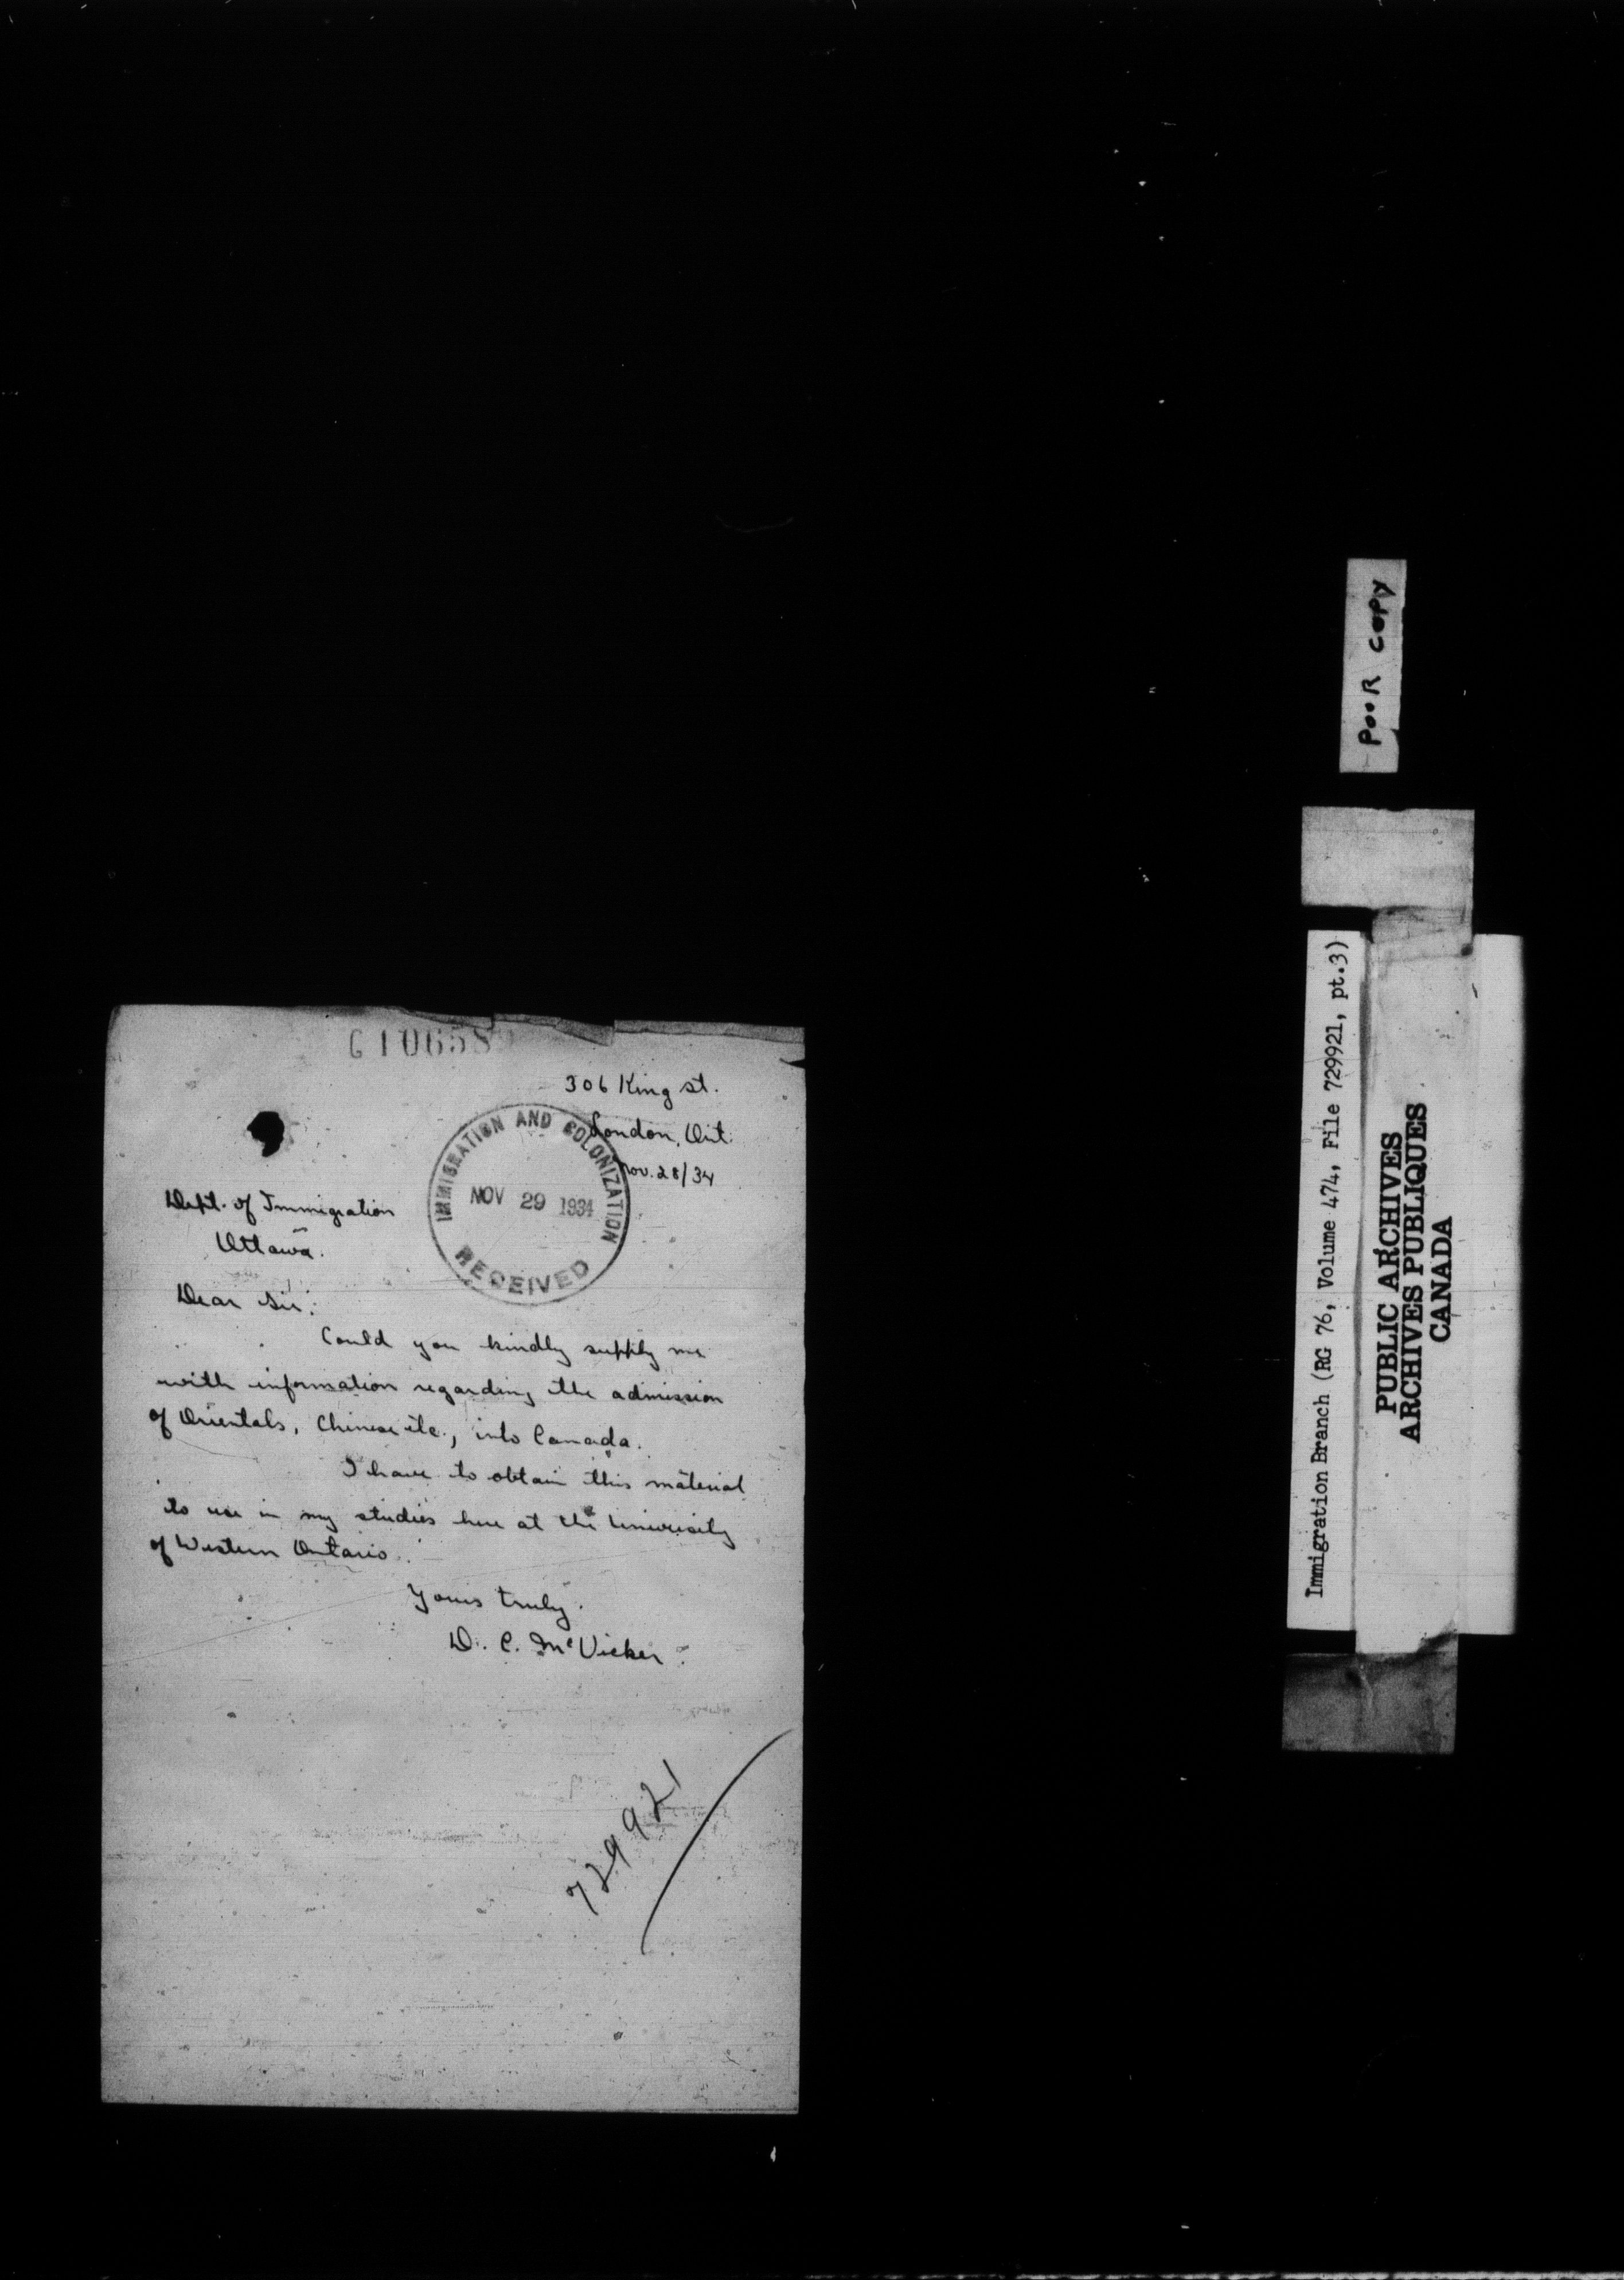 G 106589
306 King st.
London, Ont.
Nov. 28/34
IMMIGRATION AND COLONIZATION
NOV 29 1934
RECEIVED
Dept. of Immigration
Ottawa.
Dear Sir:
Could you kindly supply me
with information regarding the admission
of Orientals, Chinese etc., into Canada.
I have to obtain this material
to use in my studies here at the University
of Western Ontario.
Yours truly.
D. C. McVicker.
729921
POOR COPY
Immigration Branch (RG 76, Volume 474, File 729921, pt.3)
PUBLIC ARCHIVES
ARCHIVES PUBLIQUES
CANADA